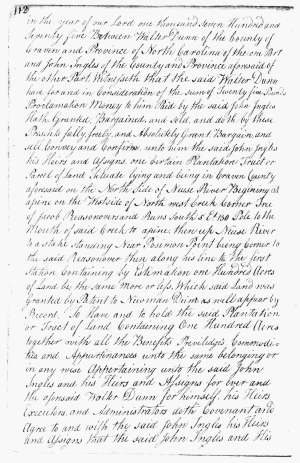 112
in the year of our Lord one thousand Seven Hundred and
Seventy five Between Walter Dunn of the County of
Craven and Province of North Carolina of the one Part
and John Ingles of the County and Province aforesaid of
the other Part Witnesseth that the said Walter Dunn
have for and in Consideration of the sum of Twenty five Pounds
Proclamation Money to him Paid by the said John Ingles
Hath Granted, Bargained, and Sold, and doth by these
Presents fully, freely, and Absolutely Grant Bargain and
sell Convey and Confirm unto him the said John Ingles
his Heirs and Assigns one Certain Plantation Tract or
Parcel of land Situate lying and being in Craven County
aforesaid on the North Side of Neuse River Begining at
a pine on the West side of North west Creek Corner Tree
of Jacob and Runs South 5 Et 180 Pole to the
Mouth of said Creek to a pine then up Neuse River
to a stake standing Near Point being Corner to
the said then along his line to The first
Station Containing by Estimation one Hundred Acres
of Land be the same More or less. Which said Land was
Granted by Patent to Newman Dunn as well appear by
Record. To Have and to hold the said Plantation
or Tract of land Containing One Hundred Acres
together with all the Benefits Priviledges Commodi-
ties and Appurtenances unto the same belonging or
in any wise Appertaining unto the said John
Ingles and his Heirs and Assigns for Ever and
the aforesaid Walter Dunn for himself, his Heirs
Executors, and Administrators doth Covenant and
Agree to and with the said John Ingles his Heirs
and Assigns that the said John Ingles and His